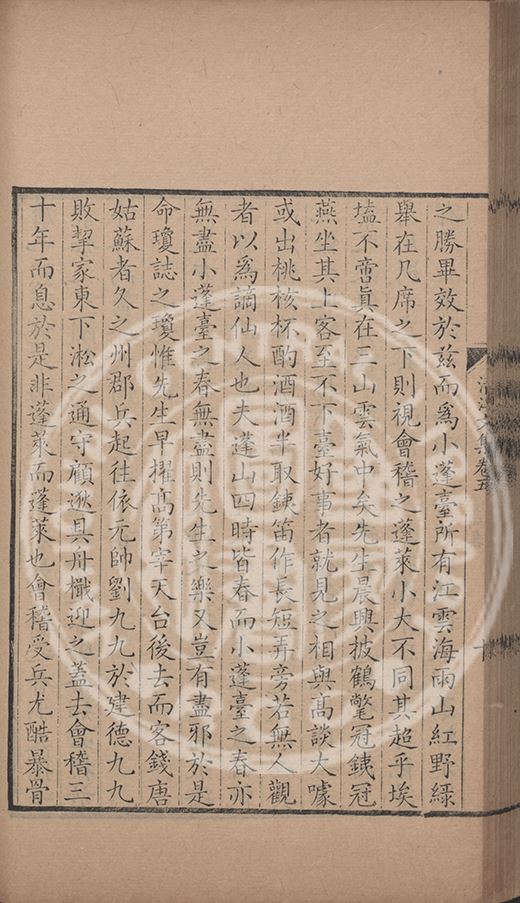 之勝畢效於茲而爲小蓬臺所有江雲海雨山紅野綠
舉在几席之下則視會稽之蓬萊小大不同其超乎埃
壒不啻眞在三山雲氣中矣先生晨興披鶴氅冠銕冠
燕坐其上客至不下臺好事者就見之相與高談大噱
或出桃核杯酌酒酒半取銕笛作長短弄旁若無人觀
者以爲謫仙人也夫蓬山四時皆春而小蓬臺之春亦
無盡小蓬臺之春無盡則先生之樂又豈有盡邪於是
命瓊誌之瓊惟先生早擢髙第宰天台後去而客錢唐
姑蘇者久之州郡兵起往依元帥劉九九於建德九九
敗挈家東下淞之通守顧逖具舟檥迎之蓋去會稽三
十年而息於是非蓬萊而蓬萊也會稽受兵尤酷暴骨